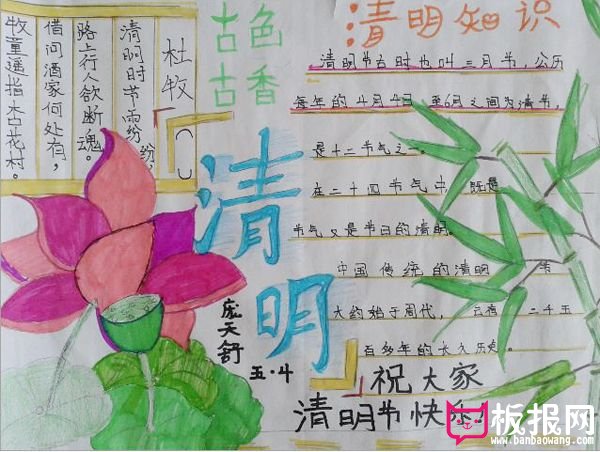 杜牧
清明时节雨纷纷,
路上行人欲断魂。
借问酒家何处有,
牧童遥指杏花村。
古色
古香
清明
庞天舒
五·4
清明知识
清明节古时也叫三月节,公历
每年的4月4日 至6日之间为清明节,
是十二节气之一。
在二十四节气中 既是
节气又是节日的清明。
中国传统的清明 节
大约始于周代, 已有二千五
百多年的长久历史。
祝大家
清明节快乐
板报网
www.banbaowang.com